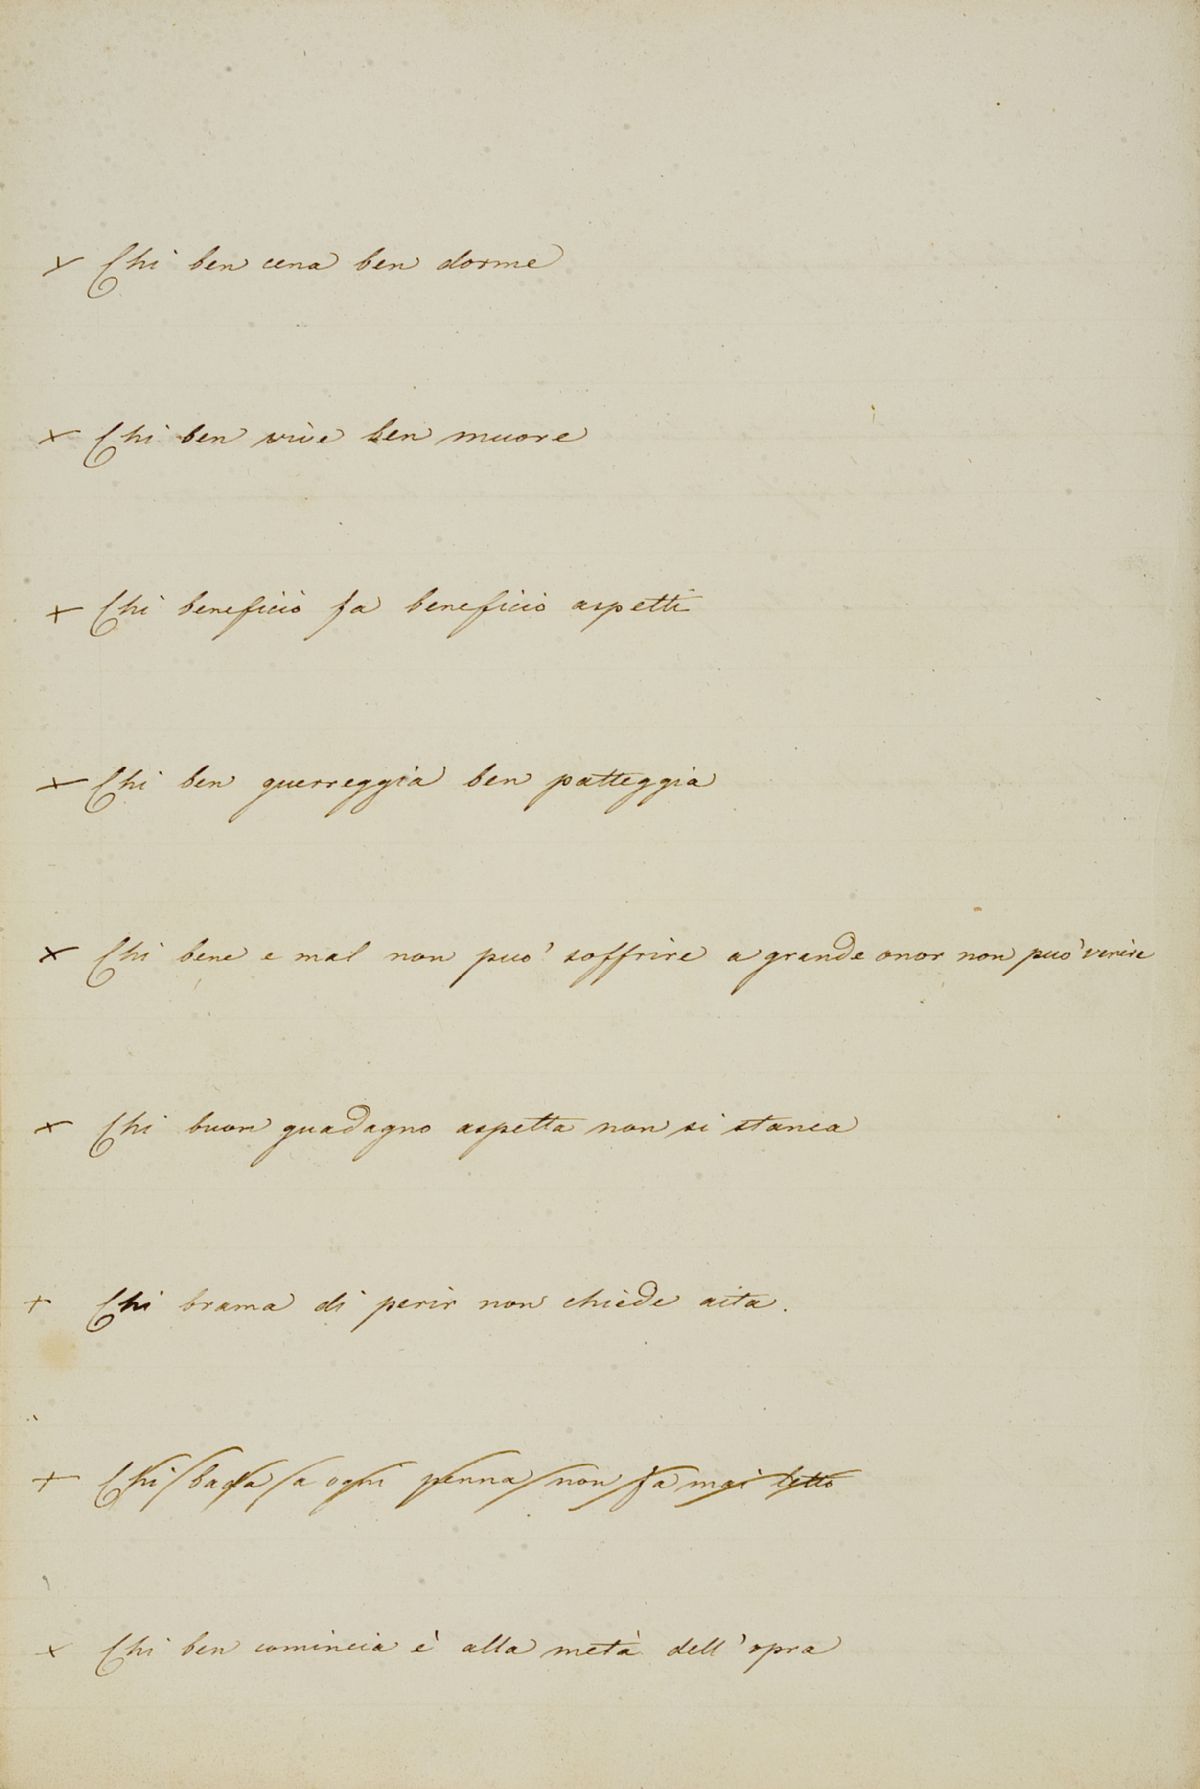 x Chi ben cena ben dorme
x Chi ben vive ben muore
+ Chi beneficio fa beneficio aspetti
x Chi ben guerreggia ben patteggia
x Chi bene e mal non può soffrire a grande onor non può venire
x Chi buon guadagno aspetta non si stanca
+ Chi brama di perir non chiede aita.
+ Chi bada a ogni penna non fa mai letto
x Chi ben comincia è alla metà dell'opra